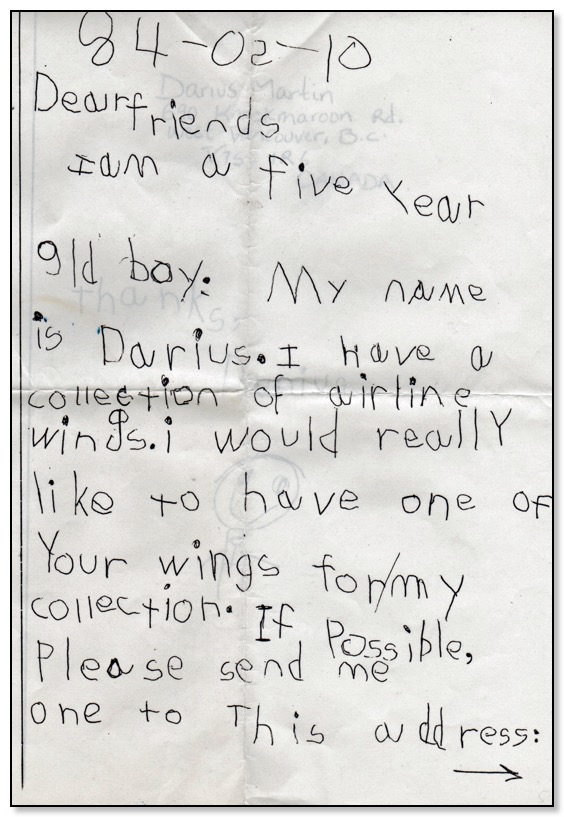 84-02-10
Dear friends
I am a five Year
old boy. My name
is Darius. I have a
collection of airline
wings. i would reallY
like to have one of
Your wings for/my
collection. If Possible,
Please send me
one to This address:
→
Darius Martin
Rd.
Vancouver, B.C.
CANADA
thanks,